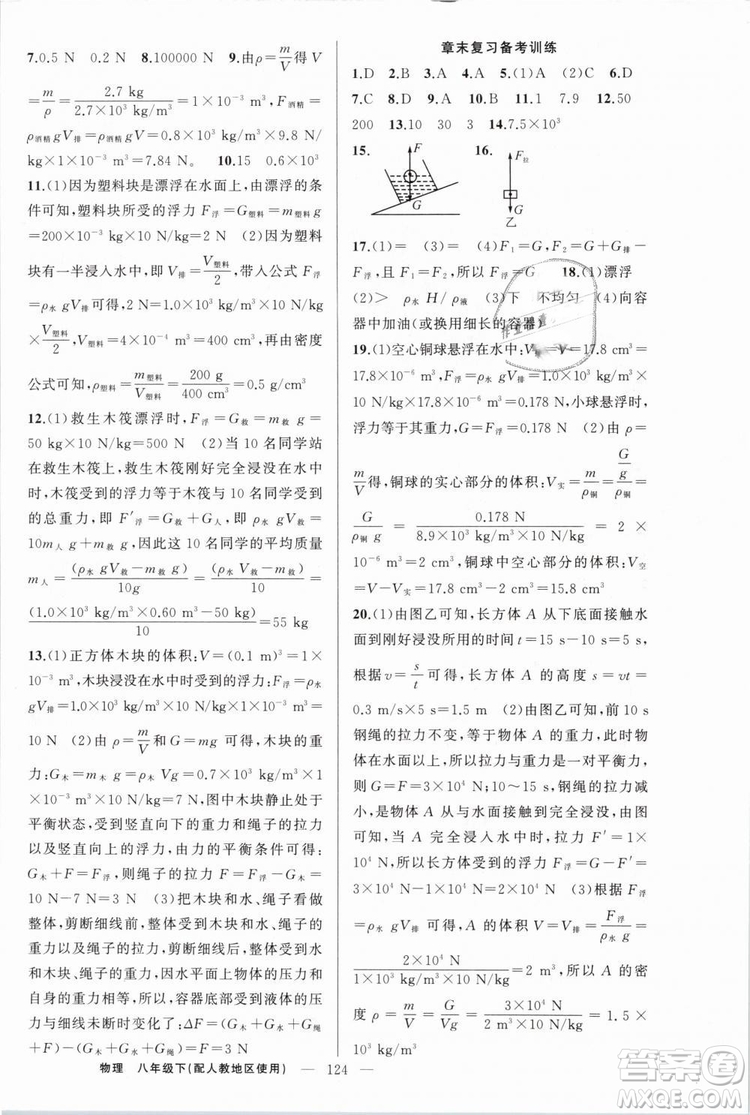 7.0.5 N　0.5 N　8.100000 N　9.由ρ=m/V得 V
=m/ρ=2.7 kg/2.7×10³ kg/m³=1×10⁻³ m³　F浮酒精=
ρ酒精 gV排=0.8×10³ kg/m³×9.8 N/
kg×10⁻³ m³=7.84 N。　10.15　0.6×10³
11.(1)因为塑料块是漂浮在水面上,由漂浮的条
件可知,塑料块所受的浮力 F浮=G塑料=m塑料 g
=200×10⁻³ kg×10 N/kg=2 N　(2)因为塑料
块有一半浸入水中,即 V排=V塑料/2,带入公式 F浮
=ρ水 gV排 可得,2 N=1×10³ kg/m³×10 N/kg×
V塑料/2,V塑料=4×10⁻⁴ m³=400 cm³,再由密度
公式可知,ρ塑料=m塑料/V塑料=200 g/400 cm³=0.5 g/cm³
12.(1)救生木筏漂浮时,F浮=G救=m救 g=
50 kg×10 N/kg=500 N　(2)当 10 名同学站
在救生木筏上,救生木筏刚好完全浸没在水中
时,木筏受的浮力等于木筏与 10 名同学受到
的总重力,即 F′浮=G救+G人,即 ρ水 gV救=
10m人 g+m救 g　10 名同学的平均质量
m人=(ρ水 gV救-m救 g)/10g=(ρ水 V救-m救)/10=
(1.0×10³ kg/m³×0.60 m³-50 kg)/10=55 kg
13.(1)正方体木块的体积:V=(0.1 m)³=1×
10⁻³ m³,木块浸没在水中时受到的浮力:F浮=ρ水
gV排=1.0×10³ kg/m³×10 N/kg×1×10⁻³ m³=
10 N　(2)由 ρ=m/V和 G=mg 可得,木块的重
力:G木=m木 g=ρ木 V木 g=0.7×10³ kg/m³×1
×10⁻³ m³×10 N/kg=7 N,图中木块静止处于
平衡状态,受到竖直向下的重力和绳子的拉力
以及竖直向上的浮力,由力的平衡条件可得,
F浮=G木+F拉,则绳子的拉力:F拉=F浮-G木=
10 N-7 N=3 N　(3)把木块和水、绳子看做
整体,剪断细线前,整体受到木块和水、绳子的
重力、绳子的拉力,剪断后受到木块和水、绳子
的重力,因水平面上物体的压力和
自身的重力相等,所以,容器底部受到的压力
与细线未断时变化了:ΔF=(G木+G水+G绳
+F拉)-(G木+G水+G绳)=F拉=3 N
章末复习备考训练
1.D　2.B　3.A　4.A　5.(1)A　(2)C　6.D
7.C　8.D　9.A　10.B　11.1　7.9　12.50
200　13.10　30　3　14.7.5×10³
15.　16.
F　G　F拉　G　乙
17.(1)=　(3)=　(4)F₁=G、F₂=G+G排、F₁=
F₂,且 F浮=G,所以F浮=G排　18.(1)漂浮
(2)>　ρ水 H/ρ液　(3)下　不均匀　(4)向容
器中加油(或换用细长的容器)
19.(1)空心铜球悬浮在水中:V排=V=17.8 cm³=
17.8×10⁻⁶ m³,F浮=ρ水 gV排=1.0×10³ kg/m³×10
N/kg×17.8×10⁻⁶ m³=0.178 N,小球悬浮时,浮
力等于其重力,F浮=G=0.178 N　(2)由 ρ=
m/V可得,铜球的实心部分的体积:V实=m/ρ铜=G/g/ρ铜=
G/ρ铜 g=0.178 N/8.9×10³ kg/m³×10 N/kg=2×
10⁻⁶ m³=2 cm³,铜球中空心部分的体积:V空
=V-V实=17.8 cm³-2 cm³=15.8 cm³
20.(1)由图乙可知,物体 A 从下底面接触水
面到刚好浸没所用的时间 t=15 s-10 s=5 s,
根据 v=s/t可得,长方体 A 的高度 s=vt=
0.3 m/s×5 s=1.5 m　(2)由图乙可知,前 10 s
钢绳的拉力不变,等于物体 A 的重力,此时物
体在水面以上,所以拉力与重力是一对平衡力,
则 G=F=3×10⁴ N;10~15 s,钢绳的拉力减
小,是物体 A 从接触水面到完全浸没,由图象
可知,当 A 完全浸入水中时,拉力 F′=1×
10⁴ N,则物体 A 受到的最大浮力 F浮=G-F′=
3×10⁴ N-1×10⁴ N=2×10⁴ N　(3)根据F浮
=ρ水 gV排 可得,A 的体积 V=V排=F浮/ρ水 g=
2×10⁴ N/1×10³ kg/m³×10 N/kg=2 m³,所以,A 的密
度 ρ=m/V=G/Vg=3×10⁴ N/2 m³×10 N/kg=1.5×
10³ kg/m³
物理　八年级下(配人教地区使用)　— 124 —